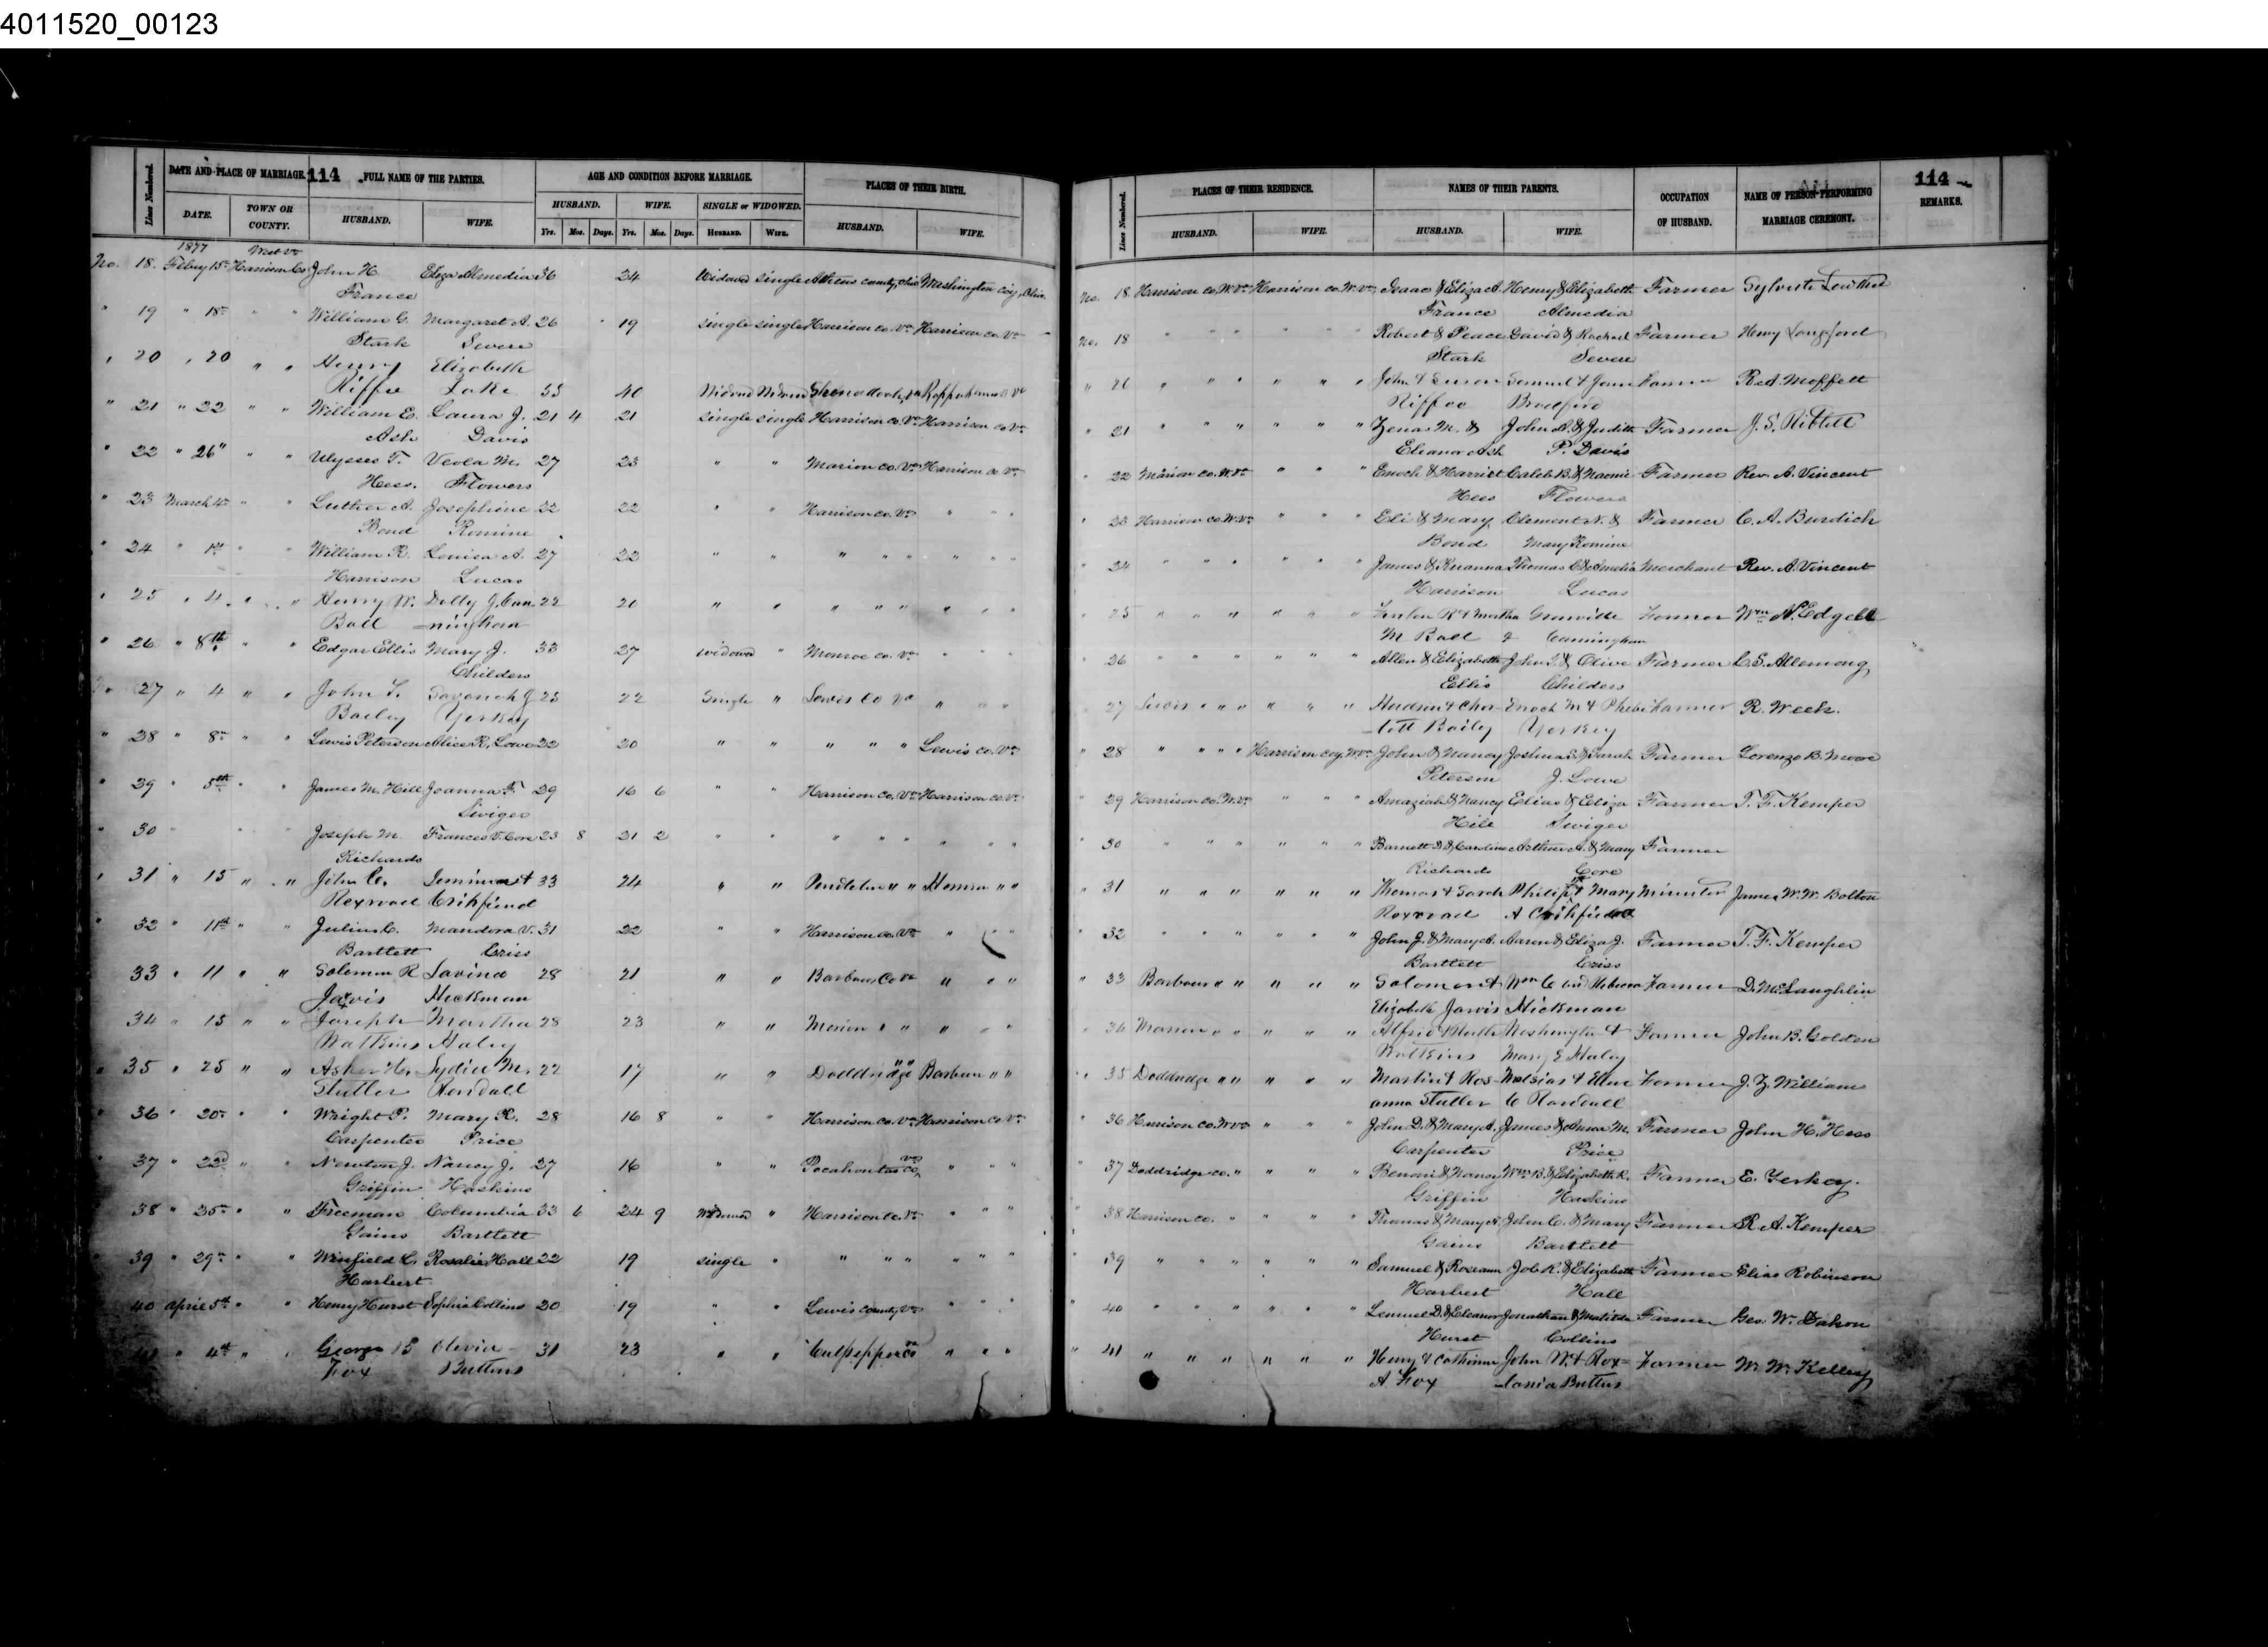 4011520_00123
Lines Numbered. DATE AND PLACE OF MARRIAGE. 114 FULL NAME OF THE PARTIES. AGE AND CONDITION BEFORE MARRIAGE. PLACES OF THEIR BIRTH.
DATE. TOWN OR COUNTY. HUSBAND. WIFE. HUSBAND. WIFE. SINGLE or WIDOWED. HUSBAND. WIFE.
Yrs. Mos. Days. Yrs. Mos. Days. HUSBAND. WIFE.
1877 West Va
No. 18. Febuy 15th Harrison Co John H. Eliza Almedia 36 24 Widowed single Athens county, Ohio Washington coy, Ohio
France
" 19 " 18th " " William G. Margaret A. 26 19 single single Harrison co. Va Harrison co. Va
Stark Severe
" 20 " 20 " " Henry Elizabeth
Riffee Lake 55 40 Widowed Widowed Shenadoah, Va Rappahannock Va
" 21 " 22 " " William E. Laura J. 21 4 21 single single Harrison co. Va Harrison co. Va
Ash Davis
" 22 " 26" " " Ulysses T. Veola M. 27 23 " " Marion co. Va Harrison co. Va
Hess. Flowers
" 23 March 4th " " Luther A. Josephine 22 22 " " Harrison co. Va " " "
Bond Romine
" 24 " 1st " " William R. Louisa A. 27 22 " " " " " " " "
Harrison Lucas
" 25 " 4 " " Henry W. Dolly J. Cun 22 20 " " " " " " " "
Ball -ningham
" 26 " 8th " " Edgar Ellis Mary J. 33 27 widowed " Monroe co. Va " " "
Childers
" 27 " 4 " " John T. Savanah J 25 22 Single " Lewis Co Va " " "
Bailey Yerkey
" 28 " 8th " " Lewis Peterson Alice R. Lowe 22 20 " " " " " Lewis co. Va
" 29 " 5th " " James M. Hill Joanna F. 29 16 6 " " Harrison Co. Va Harrison co. Va
Swiger
" 30 " " " Joseph M. Frances V. Core 23 8 21 2 " " " " " " " "
Richards
" 31 " 15 " " John C. 33 24 " " Pendleton " " " "
Rexroad Crihfield
" 32 " 11th " " Julius C. Mandora V. 31 22 " " Harrison co. Va " " "
Bartlett Criss
" 33 " 11 " " Solomon R Lavina 28 21 " " Barbour Co Va " " "
Jarvis Hickman
34 " 15 " " Joseph Martha 28 23 " " Marion " " " " "
Watkins Haley
" 35 " 25 " " Asher W. Lydia M. 22 17 " " Doddridge " " Barbour " "
Stutler Randall
" 36 " 20th " " Wright P. Mary R. 28 16 8 " " Harrison co. Va Harrison co Va
Carpenter Price
" 37 " 22d " " Newton J. Nancy J. 27 16 " " Pocahontas co Va " " "
Griffin Haskins
" 38 " 25th " " Freeman Columbia 33 6 24 9 Widowed " Harrison co. Va " " "
Gains Bartlett
" 39 " 29th " " Winfield C. Rosalie Hall 22 19 single " " " " " " "
Harbert
40 April 5th " " Henry Hurst Sophia Collins 20 19 " " Lewis county, Va " " "
41 " 4th " " George B Olivia 31 23 " " Culpepper co " " "
Fox Buttens
Lines Numbered. PLACES OF THEIR RESIDENCE. NAMES OF THEIR PARENTS. OCCUPATION OF HUSBAND. NAME OF PERSON PERFORMING MARRIAGE CEREMONY. 114 REMARKS.
HUSBAND. WIFE. HUSBAND. WIFE.
No. 18 Harrison co. W. Va Harrison co. W. Va Isaac & Eliza A. Henry & Elizabeth Farmer Sylvester Lowther
France Almedia
No. 18 " " " " " " Robert & Peace David & Rachael Farmer Henry Langford
Stark Severe
" 20 " " " " " " John & Susan Samuel & Jane Farmer Red. Moffett
Riffee Bradford
" 21 " " " " " " Zena M. & John D. & Judith Farmer J. S. Riblett
Eleanor Ash P. Davis
" 22 Marion co. W. Va " " " Enoch & Harriet Caleb B. & Naomie Farmer Rev. A. Vincent
Hess Flowers
" 23 Harrison co. W. Va " " " Eli & Mary Clement N. & Farmer C. A. Burdick
Bond Mary Romine
" 24 " " " " " " James & Thomas C & Amelia Merchant Rev. A. Vincent
Harrison Lucas
25 " " " " " " Fenton R & Martha Granville Farmer Wm N. Edgell
M Ball & Cunningham
" 26 " " " " " " Allen & Elizabeth John J. & Olive Farmer C. S. Allemong
Ellis Childers
" 27 Lewis " " " " " Hudson & Char- Enoch M & Phebe Farmer R. Week.
-lott Baily Yerkey
" 28 " " " Harrison coy. W. Va John & Nancy Joshua S. & Sarah Farmer Lorenzo B. Moore
Peterson J. Lowe
" 29 Harrison co. W. Va " " " Amaziah & Nancy Elias & Eliza Farmer T. F. Kemper
Hill Swiger
" 30 " " " " " " Barnett D. & Caroline Arthur A. & Mary Farmer
Richards Core
" 31 " " " " " " Thomas & Sarah Philip & Mary Minister James W. W. Bolton
Rexroad A Crihfield
" 32 " " " " " " John J. & Mary A. Aaron & Eliza J. Farmer T. F. Kemper
Bartlett Criss
" 33 Barbour " " " " " Solomon & Wm C and Rebecca Farmer D. McLaughlin
Elizabeth Jarvis Hickman
" 34 Marion " " " " " Alfred & Washington & Farmer John B. Golden
Watkins Mary E Haley
" 35 Doddridge " " " " " Martin & Ros- & Farmer J. Z. William
anna Stutler C Randall
" 36 Harrison co. W Va " " " John D. & Mary A. James & Susan M. Farmer John H. Hess
Carpenter Price
" 37 Doddridge co. " " " " Benoni & Nancy Wm B. & Elizabeth R. Farmer E. Yerkey.
Griffin Haskins
" 38 Harrison co. " " " " Thomas & Mary A. John C. & Mary Farmer R. A. Kemper
Gains Bartlett
" 39 " " " " " " Samuel & Roseann Job R. & Elizabeth Farmer Elias Robinson
Harbert Hall
" 40 " " " " " " Lemuel D. & Eleanor Jonathan & Matilda Farmer Geo. W.
Hurst Collins
" 41 " " " " " " Henry & Catharine John W. & Rox- Farmer W. W. Kelley
A. Fox -lania Buttus